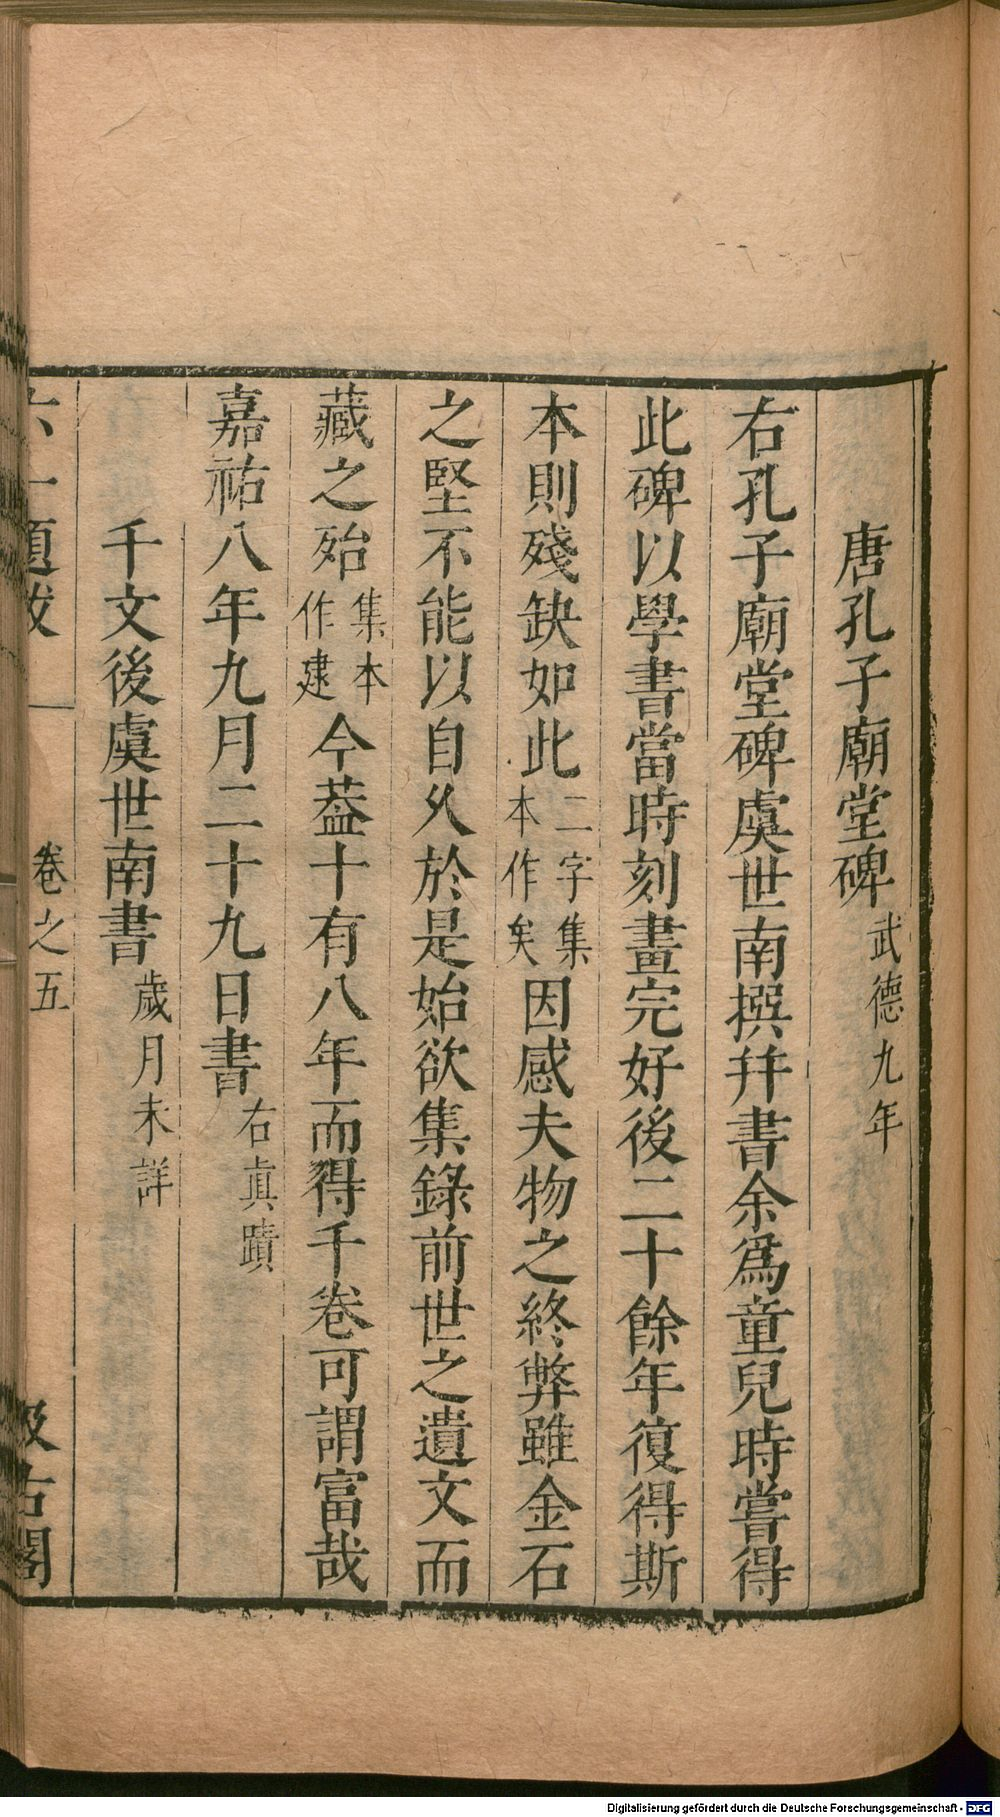 唐孔子廟堂碑武德九年
右孔子廟堂碑虞世南撰幷書余爲童兒時嘗得
此碑以學書當時刻畫完好後二十餘年復得斯
本則殘缺如此二字集本作矣因感夫物之終弊雖金石
之堅不能以自久於是始欲集錄前世之遺文而
藏之殆集本作建今葢十有八年而得千卷可謂富哉
嘉祐八年九月二十九日書右眞蹟
千文後虞世南書歲月未詳
六一題跋 卷之五 汲古閣
Digitalisierung gefördert durch die Deutsche Forschungsgemeinschaft - DFG